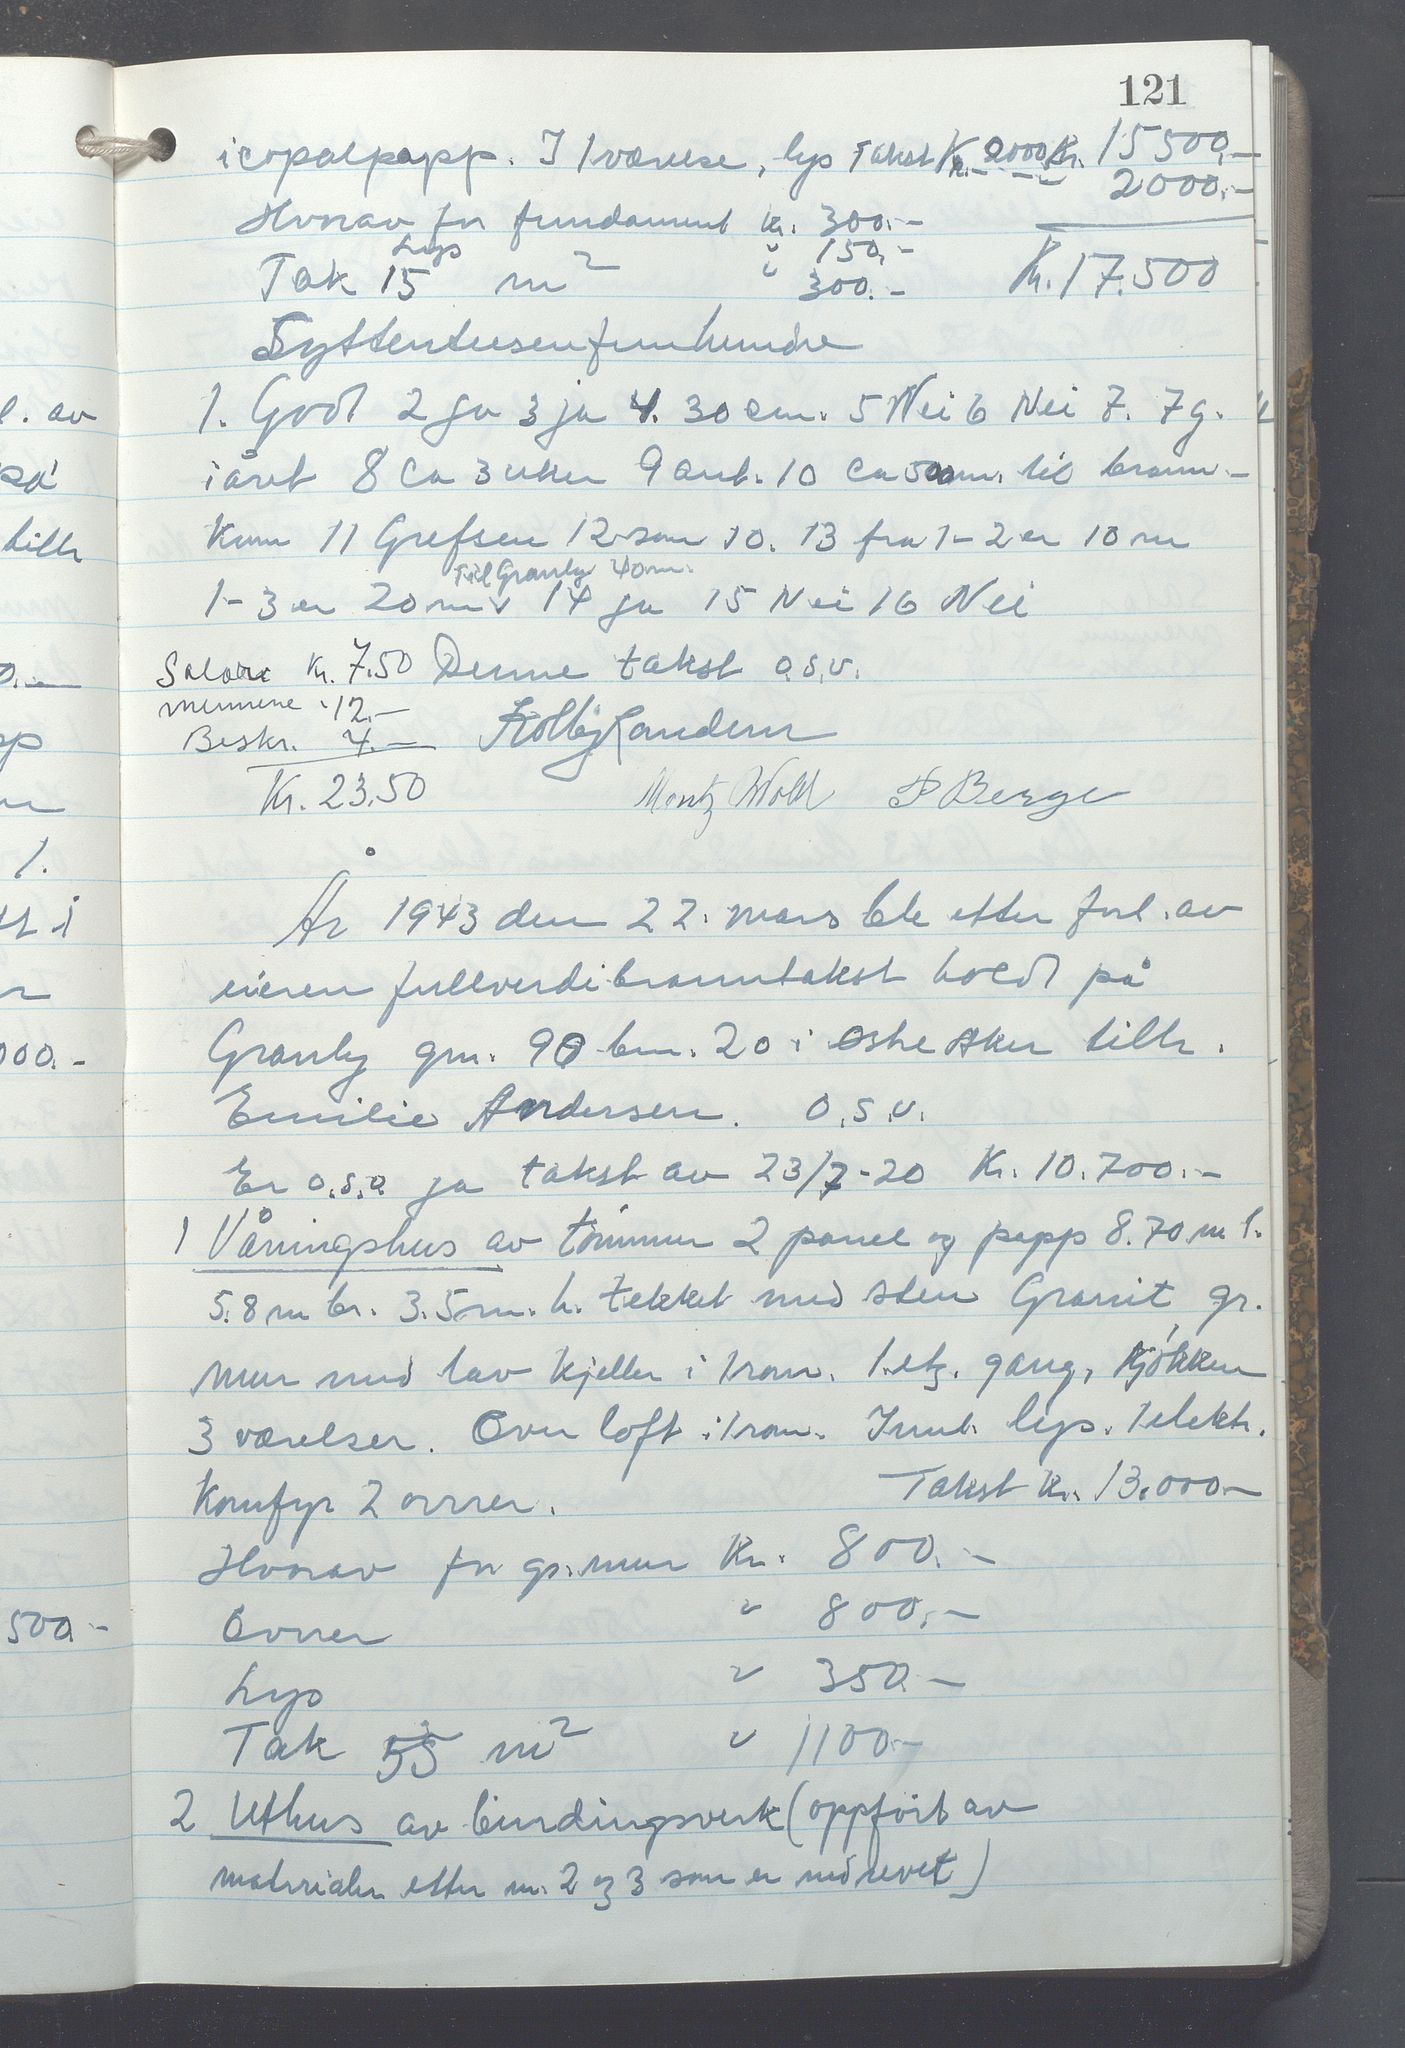 121
icopalpapp. I 1 værelse, lys Takst Kr. 2000 Kr. 15500,-
2000.-
Hvorav for fundament Kr. 300.-
Lys " 150,-
Tak 15 m² " 300.-
Kr. 17.500
Syttentusenfemhundre
1. God 2 ja 3 ja 4. 30 cm. 5 Nei 6 Nei 7. 7 g.
i året 8 Ca 3 uker 9 anb. 10 Ca 50 m. til brann-
kum 11 Grefsen 12 som 10. 13 fra 1-2 er 10 m
Til Granly 40 m.
1-3 er 20 m 14 ja 15 Nei 16 Nei
Salær Kr. 7.50 Denne takst o.s.v.
mennene " 12.-
Beskr. 4.-
Kr. 23.50
Moritz Wold P Berge
År 1943 den 22. mars ble etter forl. av
eieren fullverdibranntakst holdt på
Granly gnr. 90 bnr. 20 i østre Aker tilh.
Emilie Andersen. o.s.v.
Er o.s.a ja takst av 23/7-20 Kr. 10.700.-
1 Våningshus av tömmer 2 panel og papp 8.70 m l.
5.8 m br. 3.5 m. h. tekket med sten Granit, gr.
mur med lav kjeller i 1 rom. 1. etg. gang, kjökken
3 værelser. Over loft i 1 rom. Innb. lys. 1 elektr.
komfyr 2 ovner. Takst Kr. 13.000-
Hvorav for gr. mur Kr. 800.-
Ovner " 800,-
Lys " 350.-
Tak 55 m² " 1100.-
2 Uthus av bindingsverk (oppfört av
materialer etter nr. 2 og 3 som er nedrevet)
l. av
på
tilh
1.
000.-
500.-